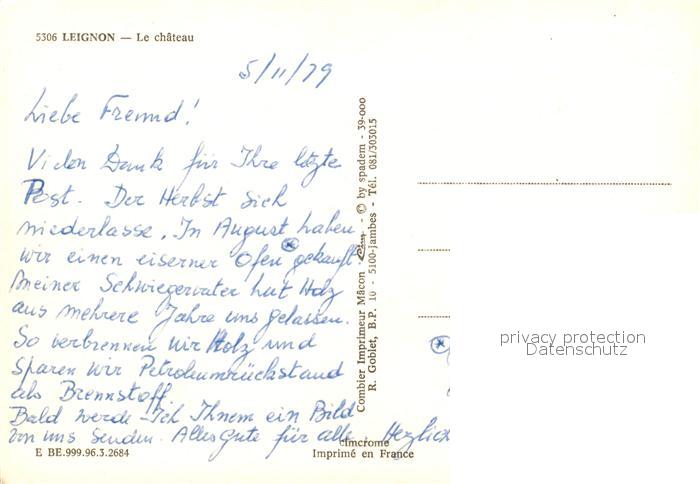 5306 LEIGNON — Le château
5/11/79
Liebe Fremd!
Vielen Dank für Ihre letzte
Post. Der Herbst sich
niederlasse. In August haben
wir einen eiserner Ofen gekauft.
Meiner Schwiegervater hat Holz
aus mehrere Jahre uns gelassen.
So verbrennen wir Holz und
sparen wir Petroleumrückstand
als Brennstoff.
Bald werde Ich Ihnem ein Bild
von uns senden. Alles Gute für alle. Herzlich
E BE.999.96.3.2684
cimcrome
Imprimé en France
Combier Imprimeur Mâcon - © by spadem - 39-000
R. Goblet, B.P. 10 - 5100-Jambes - Tél. 081/303015
privacy protection
Datenschutz